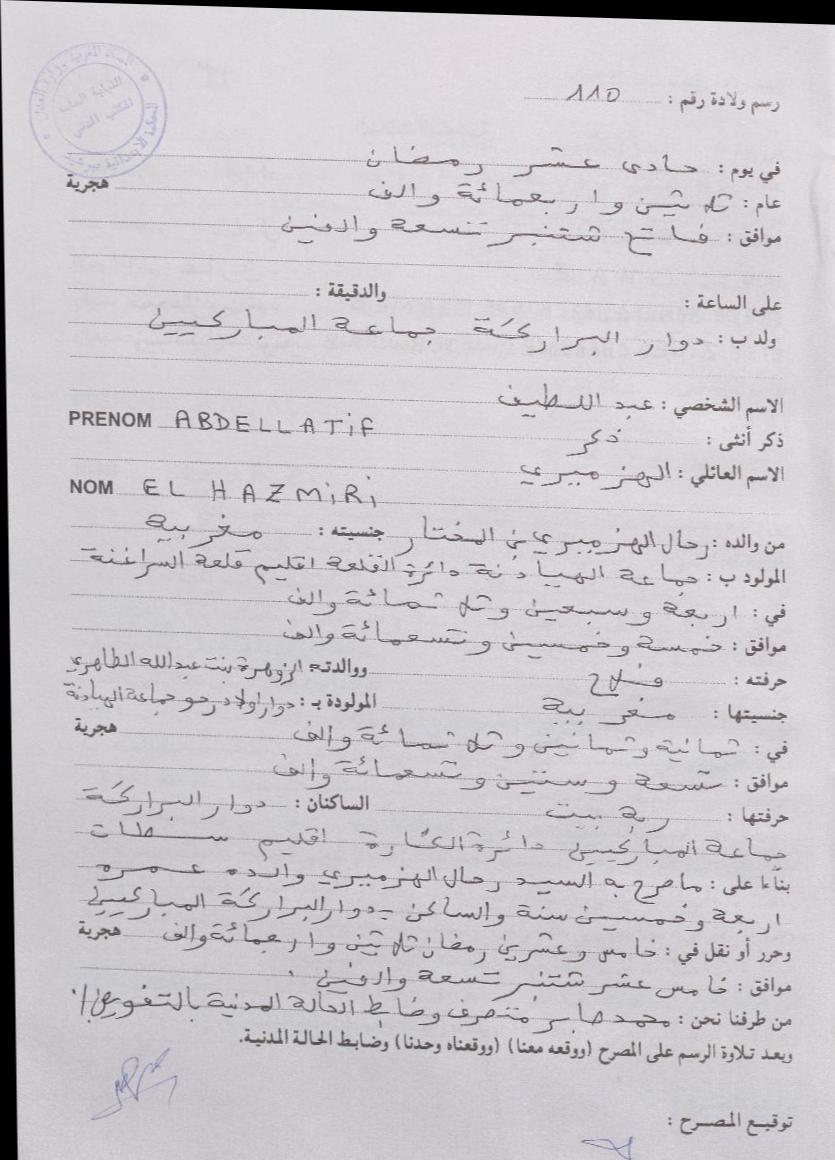 رسم ولادة رقم : 110
في يوم : حادي عشر رمضان
عام : ثلاثين واربعمائة والف هجرية
موافق : فاتح شتنبر تسعة والفين
على الساعة : والدقيقة :
ولد ب : دوار البراركة جماعة المباركيين
الاسم الشخصي : عبد اللطيف
PRENOM ABDELLATiF
ذكر أنثى : ذكر
الاسم العائلي : الهزميري
NOM EL HAZMiRi
من والده : رحال الهزميري بن المختار جنسيته : مغربية
المولود ب : جماعة الهيادنة دائرة القلعة اقليم قلعة السراغنة
في : اربعة وسبعين وثلاثمائة والف
موافق : خمسة وخمسين وتسعمائة والف
حرفته : فلاح ووالدته الزوهرة بنت عبد الله الطاهري
جنسيتها : مغربية المولودة بـ : دوار اولاد رحو جماعة الهيادنة
في : ثمانية وثمانين وثلاثمائة والف هجرية
موافق : تسعة وستين وتسعمائة والف
حرفتها : ربة بيت الساكنان : دوار البراركة
جماعة المباركيين دائرة الكارة اقليم سطات
بناءا على : ما صرح به السيد رحال الهزميري والده عمره
اربعة وخمسين سنة والساكن بدوار البراركة المباركيين
وحرر أو نقل في : خامس وعشرين رمضان ثلاثين واربعمائة والف هجرية
موافق : خامس عشر شتنبر تسعة والفين
من طرفنا نحن : محمد صابر متصرف وضابط الحالة المدنية بالتفويض
وبعد تلاوة الرسم على المصرح (ووقعه معنا) (ووقعناه وحدنا) وضابط الحالة المدنية.
توقيع المصرح :